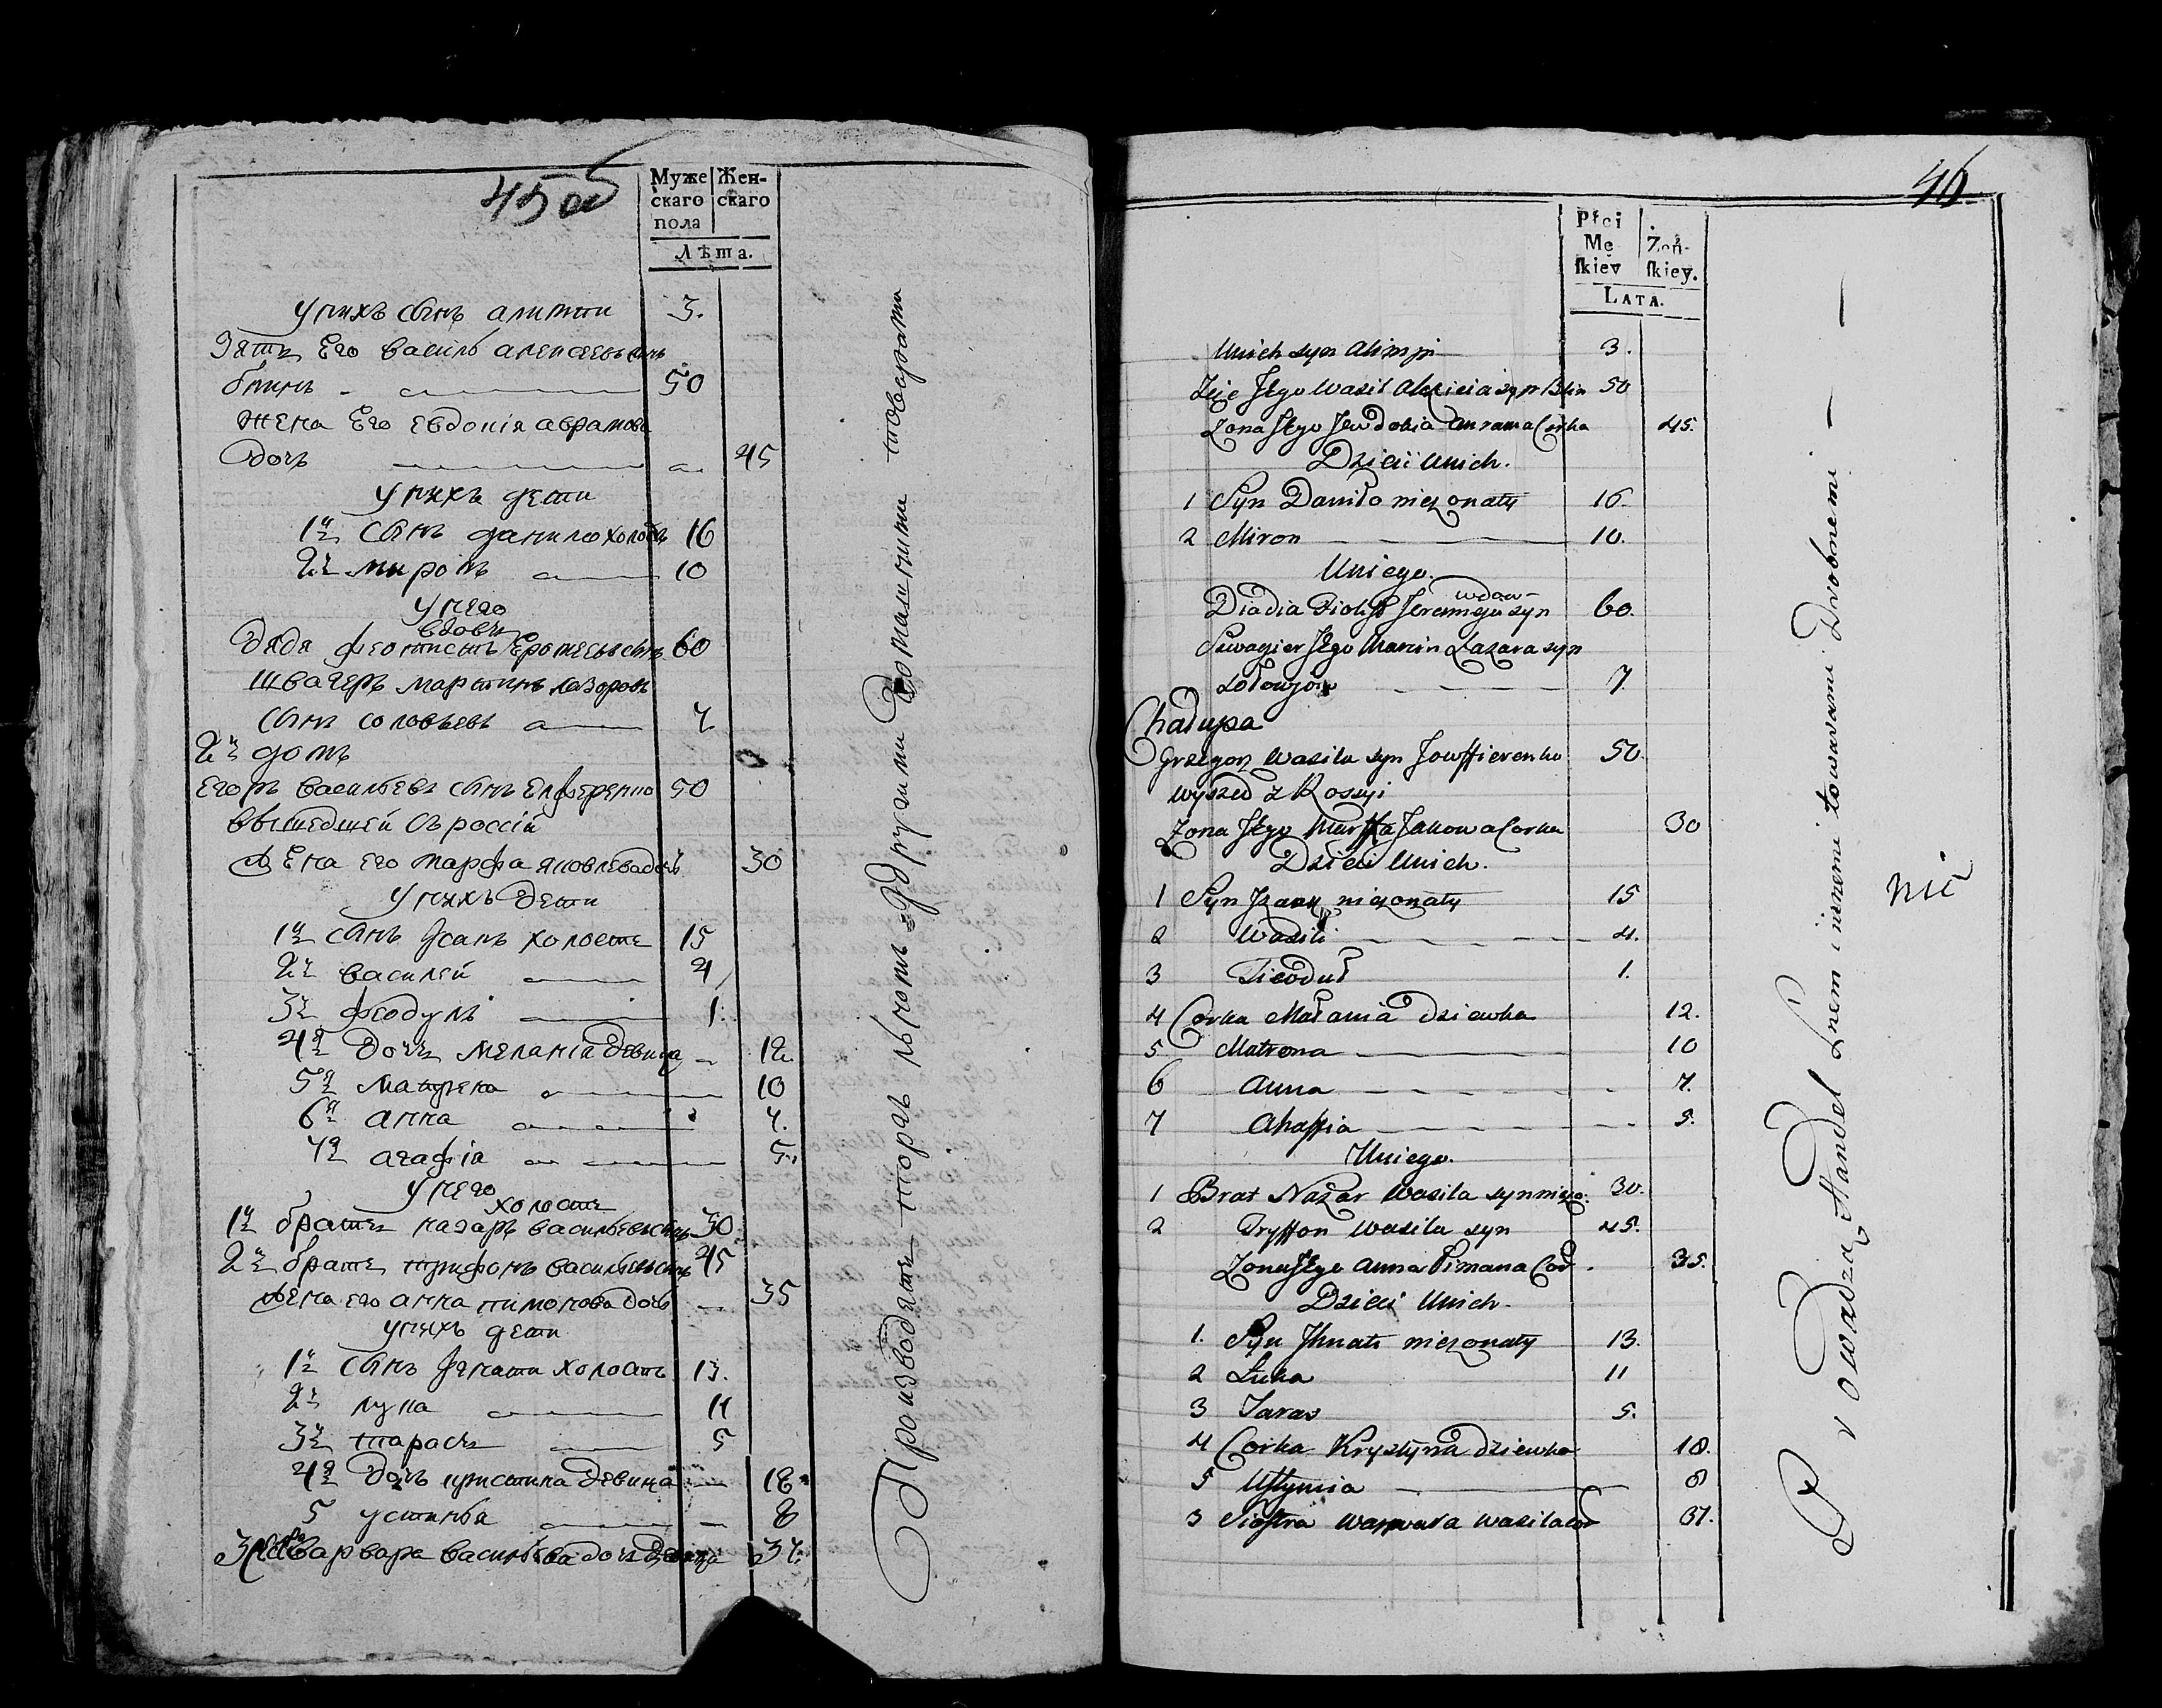 45 об
Муже
скаго
пола
Жен-
скаго
Лѣта.
у нихъ сынъ алимпи 3.
Зять Его василь алексеевъ сынъ
блинъ 50
жена Его евдокія аврамова
дочь 45
у нихъ дети
1й сынъ данило холостъ 16
2й миронъ 10
у него
вдовъ
дядя феоктистъ Еромеевъ сынъ 60
швагеръ мартинъ лазоровъ
сынъ соловьевъ 7
2й домъ
Егоръ васильевъ сынъ Елфтеренко 50
вышедшей съ россіи
жена его марфа яковлева дочь 30
у нихъ дети
1й сынъ Исакъ холостъ 15
2й василей 4
3й феодулъ 1.
4я дочь меланіа девица 12
5я матрена 10
6я анна 7.
7я агафіа 5.
у него
холостъ
1й братъ назаръ васильевъ сынъ 30
2й братъ трифонъ васильевъ сынъ 45
жена его анна пимонова дочь 35
у нихъ дети
1й сынъ Игнати холостъ 13.
2й лука 11
3й тарасъ 5
4я дочь христина девица 18
5 устинья 8
3 варвара васильева дочь девица 37.
Производятъ торгъ льномъ и другими домашними товарами
46
Płci
Mę
ſkiey
Żeń-
ſkiey.
LATA.
Unich syn Alimpi 3.
Zięć Jego Wasil Alexieia syn Blin 50
Zona Jego Jewdokia Awrama Corka 45.
Dzieci Unich.
1 Syn Daniło niezonaty 16.
2 Miron 10.
Uniego.
wdow
Diadia Fiokist Jeremeja syn 60.
Szwagier Jego Marcin Łazara syn
Sołowjow 7
Chałupa
Grzegorz Wasila syn Jowffierenko 50.
wyszed z Rossyi
Zona Jego Marffa Jakowa Corka 30
Dzieci Unich.
1 Syn Izaak niezonaty 15
2 Wasili 4.
3 Fieoduł 1.
4 Corka Małania dziewka 12.
5 Matrona 10
6 Anna 7.
7 Ahaffia 5.
Uniego.
1 Brat Nazar Wasila syn niezo. 30.
2 Tryffon Wasila syn 45.
Zona Jego Anna Pimana Cor. 35.
Dzieci Unich.
1. Syn Ihnati niezonaty 13.
2 Łuka 11
3 Taras 5.
4 Corka Krystyna dziewka 18.
5 Ustynia 8
3 Siostra Warwara Wasila Cor 37.
Prowadzą Handel Lnem i innemi towarami Drobnemi
nic